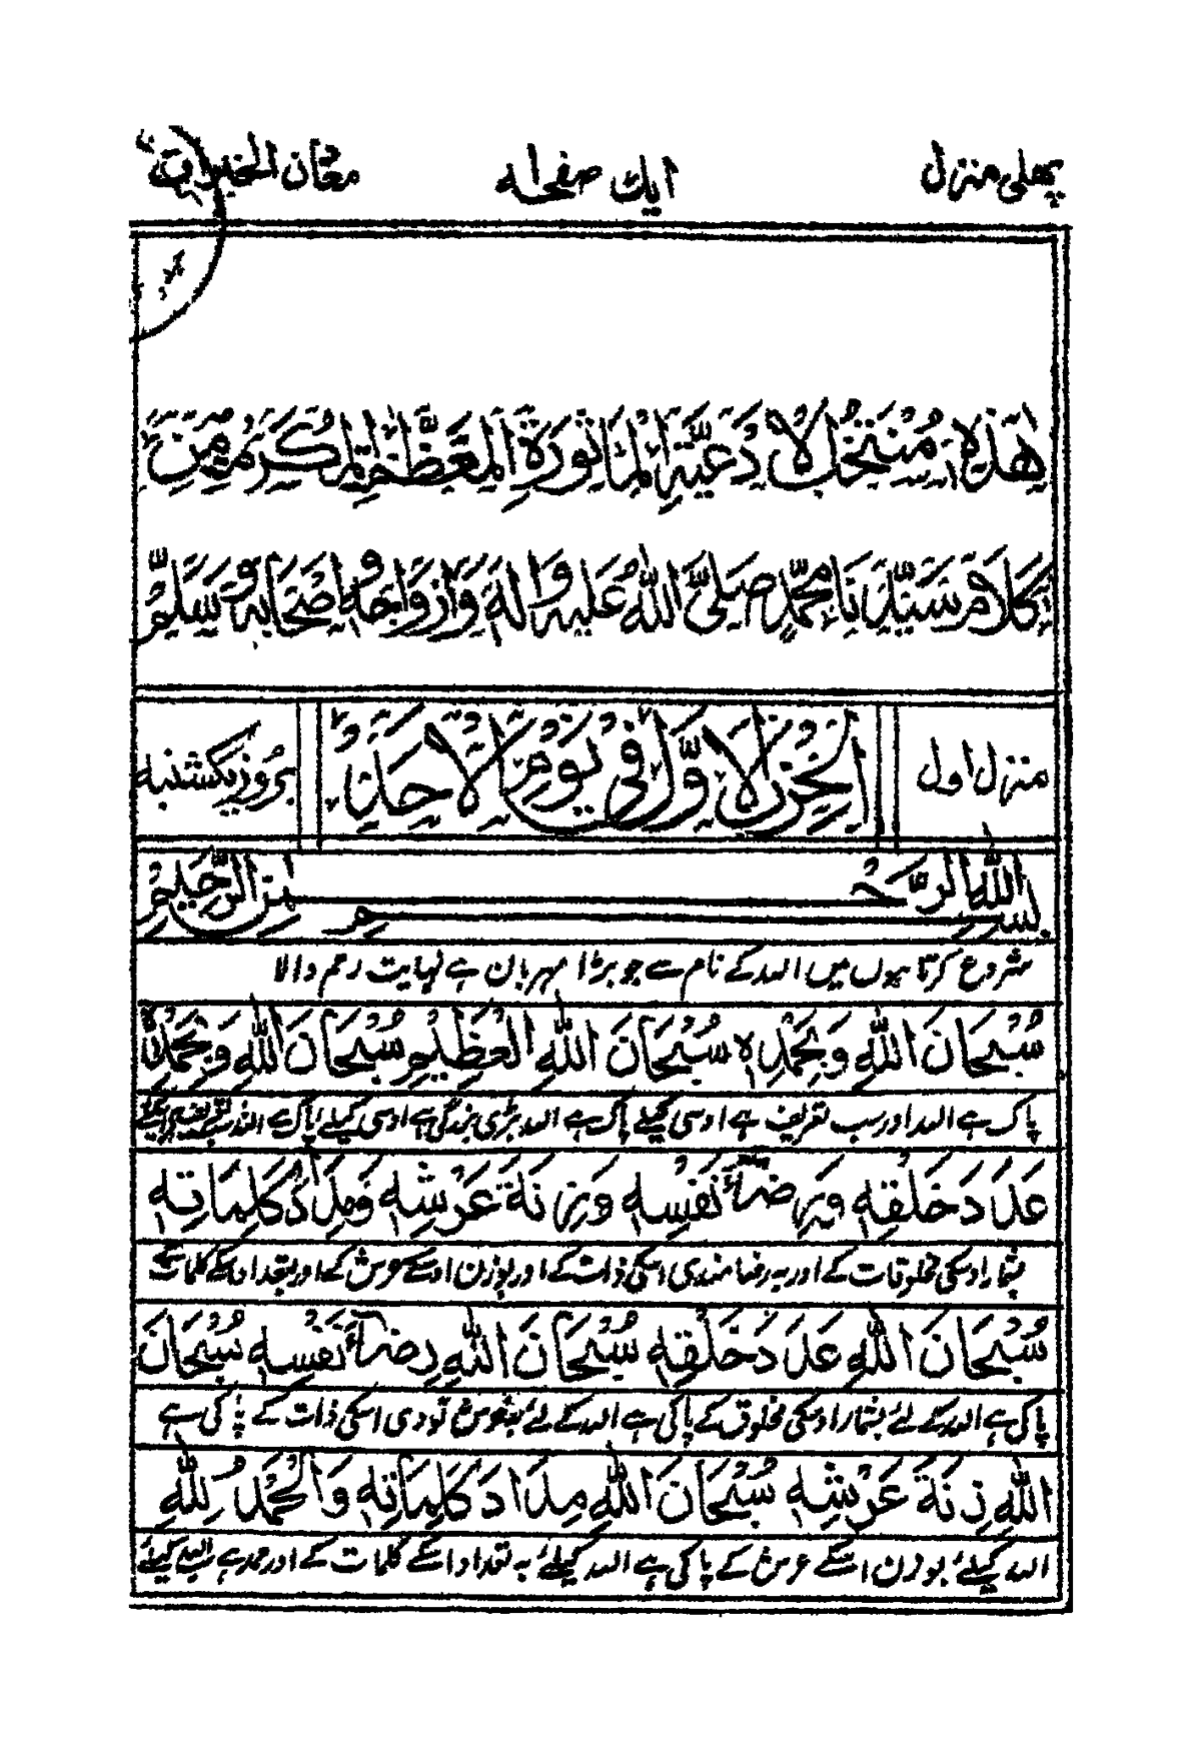 پھلی منزل ایک صفحہ معدن الخیرات
هٰذِهٖ مُنْتَخَبُ الْاَدْعِيَّةِ الْمَاثُورَةِ الْمُعَظَّمَةِ الْمُكَرَّمَةِ مِنْ
كَلَامِ سَيِّدِنَا مُحَمَّدٍ صَلَّى اللّٰهُ عَلَيْهِ وَاٰلِهٖ وَاَزْوَاجِهٖ وَاَصْحَابِهٖ وَسَلَّمَ
منزل اول اَلْحِزْبُ الْاَوَّلُ فِیْ يَوْمِ الْاَحَدِ بروز یکشنبه
بِسْمِ اللّٰهِ الرَّحْمٰنِ الرَّحِيْمِ
شروع کرتا ہوں میں اللہ کے نام سے جو بڑا مہربان ہے نہایت رحم والا
سُبْحَانَ اللّٰهِ وَبِحَمْدِهٖ سُبْحَانَ اللّٰهِ الْعَظِيْمِ سُبْحَانَ اللّٰهِ وَبِحَمْدِهٖ
پاک ہے اللہ اور سب تعریف ہے اوسی کیلئے پاک ہے اللہ بڑی بزرگی ہے اوسی کیلئے پاک ہے اللہ
عَدَدَ خَلْقِهٖ وَرِضَآءَ نَفْسِهٖ وَزِنَةَ عَرْشِهٖ وَمِدَادَ كَلِمَاتِهٖ
بشمار اوسکی مخلوقات کے اور بہ رضا مندی اسکی ذات کے اور بوزن اوسکے عرش کے اور بتعداد اوسکے کلمات کے
سُبْحَانَ اللّٰهِ عَدَدَ خَلْقِهٖ سُبْحَانَ اللّٰهِ رِضَآءَ نَفْسِهٖ سُبْحَانَ
پاکی ہے اللہ کے لئے بشمار اوسکی مخلوق کے پاکی ہے اللہ کے لئے بخوشنودی اسکی ذات کے پاکی ہے
اللّٰهِ زِنَةَ عَرْشِهٖ سُبْحَانَ اللّٰهِ مِدَادَ كَلِمَاتِهٖ وَالْحَمْدُ لِلّٰهِ
اللہ کیلئے بوزن اسکے عرش کے پاکی ہے اللہ کیلئے بہ تعداد اسکے کلمات کے اور حمد ہے اللہ کیلئے